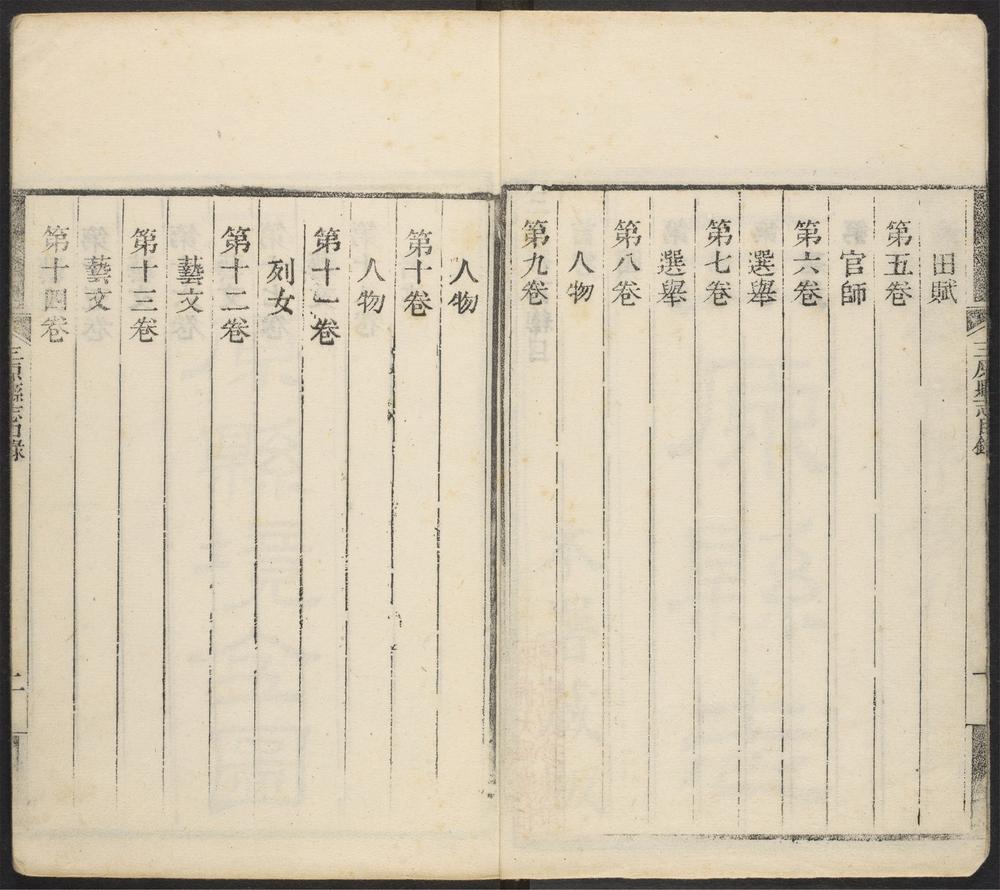 田賦
第五卷
官師
第六卷
選舉
第七卷
選舉
第八卷
人物
第九卷
三原縣志目錄
一
人物
第十卷
人物
第十一卷
列女
第十二卷
藝文
第十三卷
藝文
第十四卷
三原縣志目錄
二